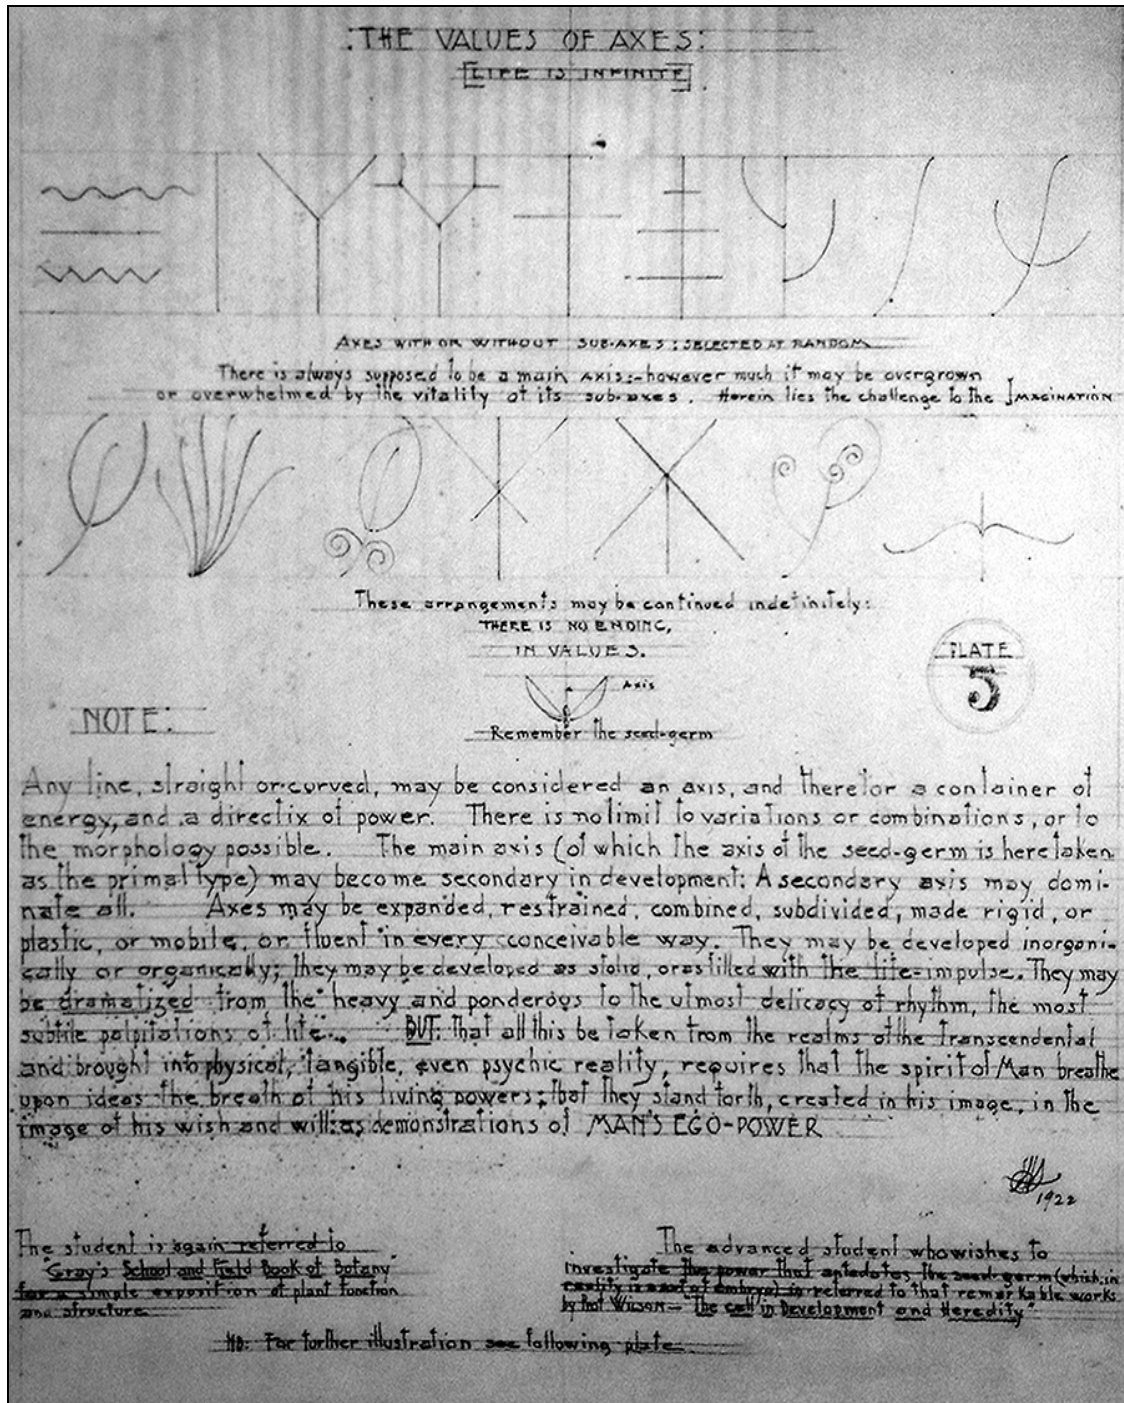 :THE VALUES OF AXES:
[LIFE IS INFINITE].
AXES WITH OR WITHOUT SUB-AXES: SELECTED AT RANDOM
There is always supposed to be a main AXIS:-however much it may be overgrown
or overwhelmed by the vitality of its sub-axes. Herein lies the challenge to the IMAGINATION
These arrangements may be continued indefinitely:
THERE IS NO ENDING,
IN VALUES.
PLATE
5
Axis
Remember the seed-germ
NOTE:
Any line, straight or curved, may be considered an axis, and therefor a container of
energy, and a directix of power. There is no limit to variations or combinations, or to
the morphology possible. The main axis (of which the axis of the seed-germ is here taken
as the primal type) may become secondary in development: A secondary axis may domi-
nate all. Axes may be expanded, restrained, combined, subdivided, made rigid, or
plastic, or mobile, or fluent in every conceivable way. They may be developed inorgani-
cally or organically; they may be developed as stolid, or as filled with the life-impulse. They may
be dramatized from the heavy and ponderous to the utmost delicacy of rhythm, the most
subtile palpitations of life... BUT: That all this be taken from the realms of the Transcendental
and brought into physical, tangible, even psychic reality, requires that the spirit of Man breathe
upon ideas the breath of his living powers; that they stand forth, created in his image, in the
image of his wish and will: as demonstrations of MAN'S EGO-POWER
1922
The student is again referred to
"Gray's School and Field Book of Botany"
for a simple exposition of plant function
and structure.
The advanced student who wishes to
investigate the power that antedates the seed-germ (which, in
reality is a sort of embryo) is referred to that remarkable works
by Prof Wilson- "The cell in Development and Heredity"
NB: For further illustration see following plate.